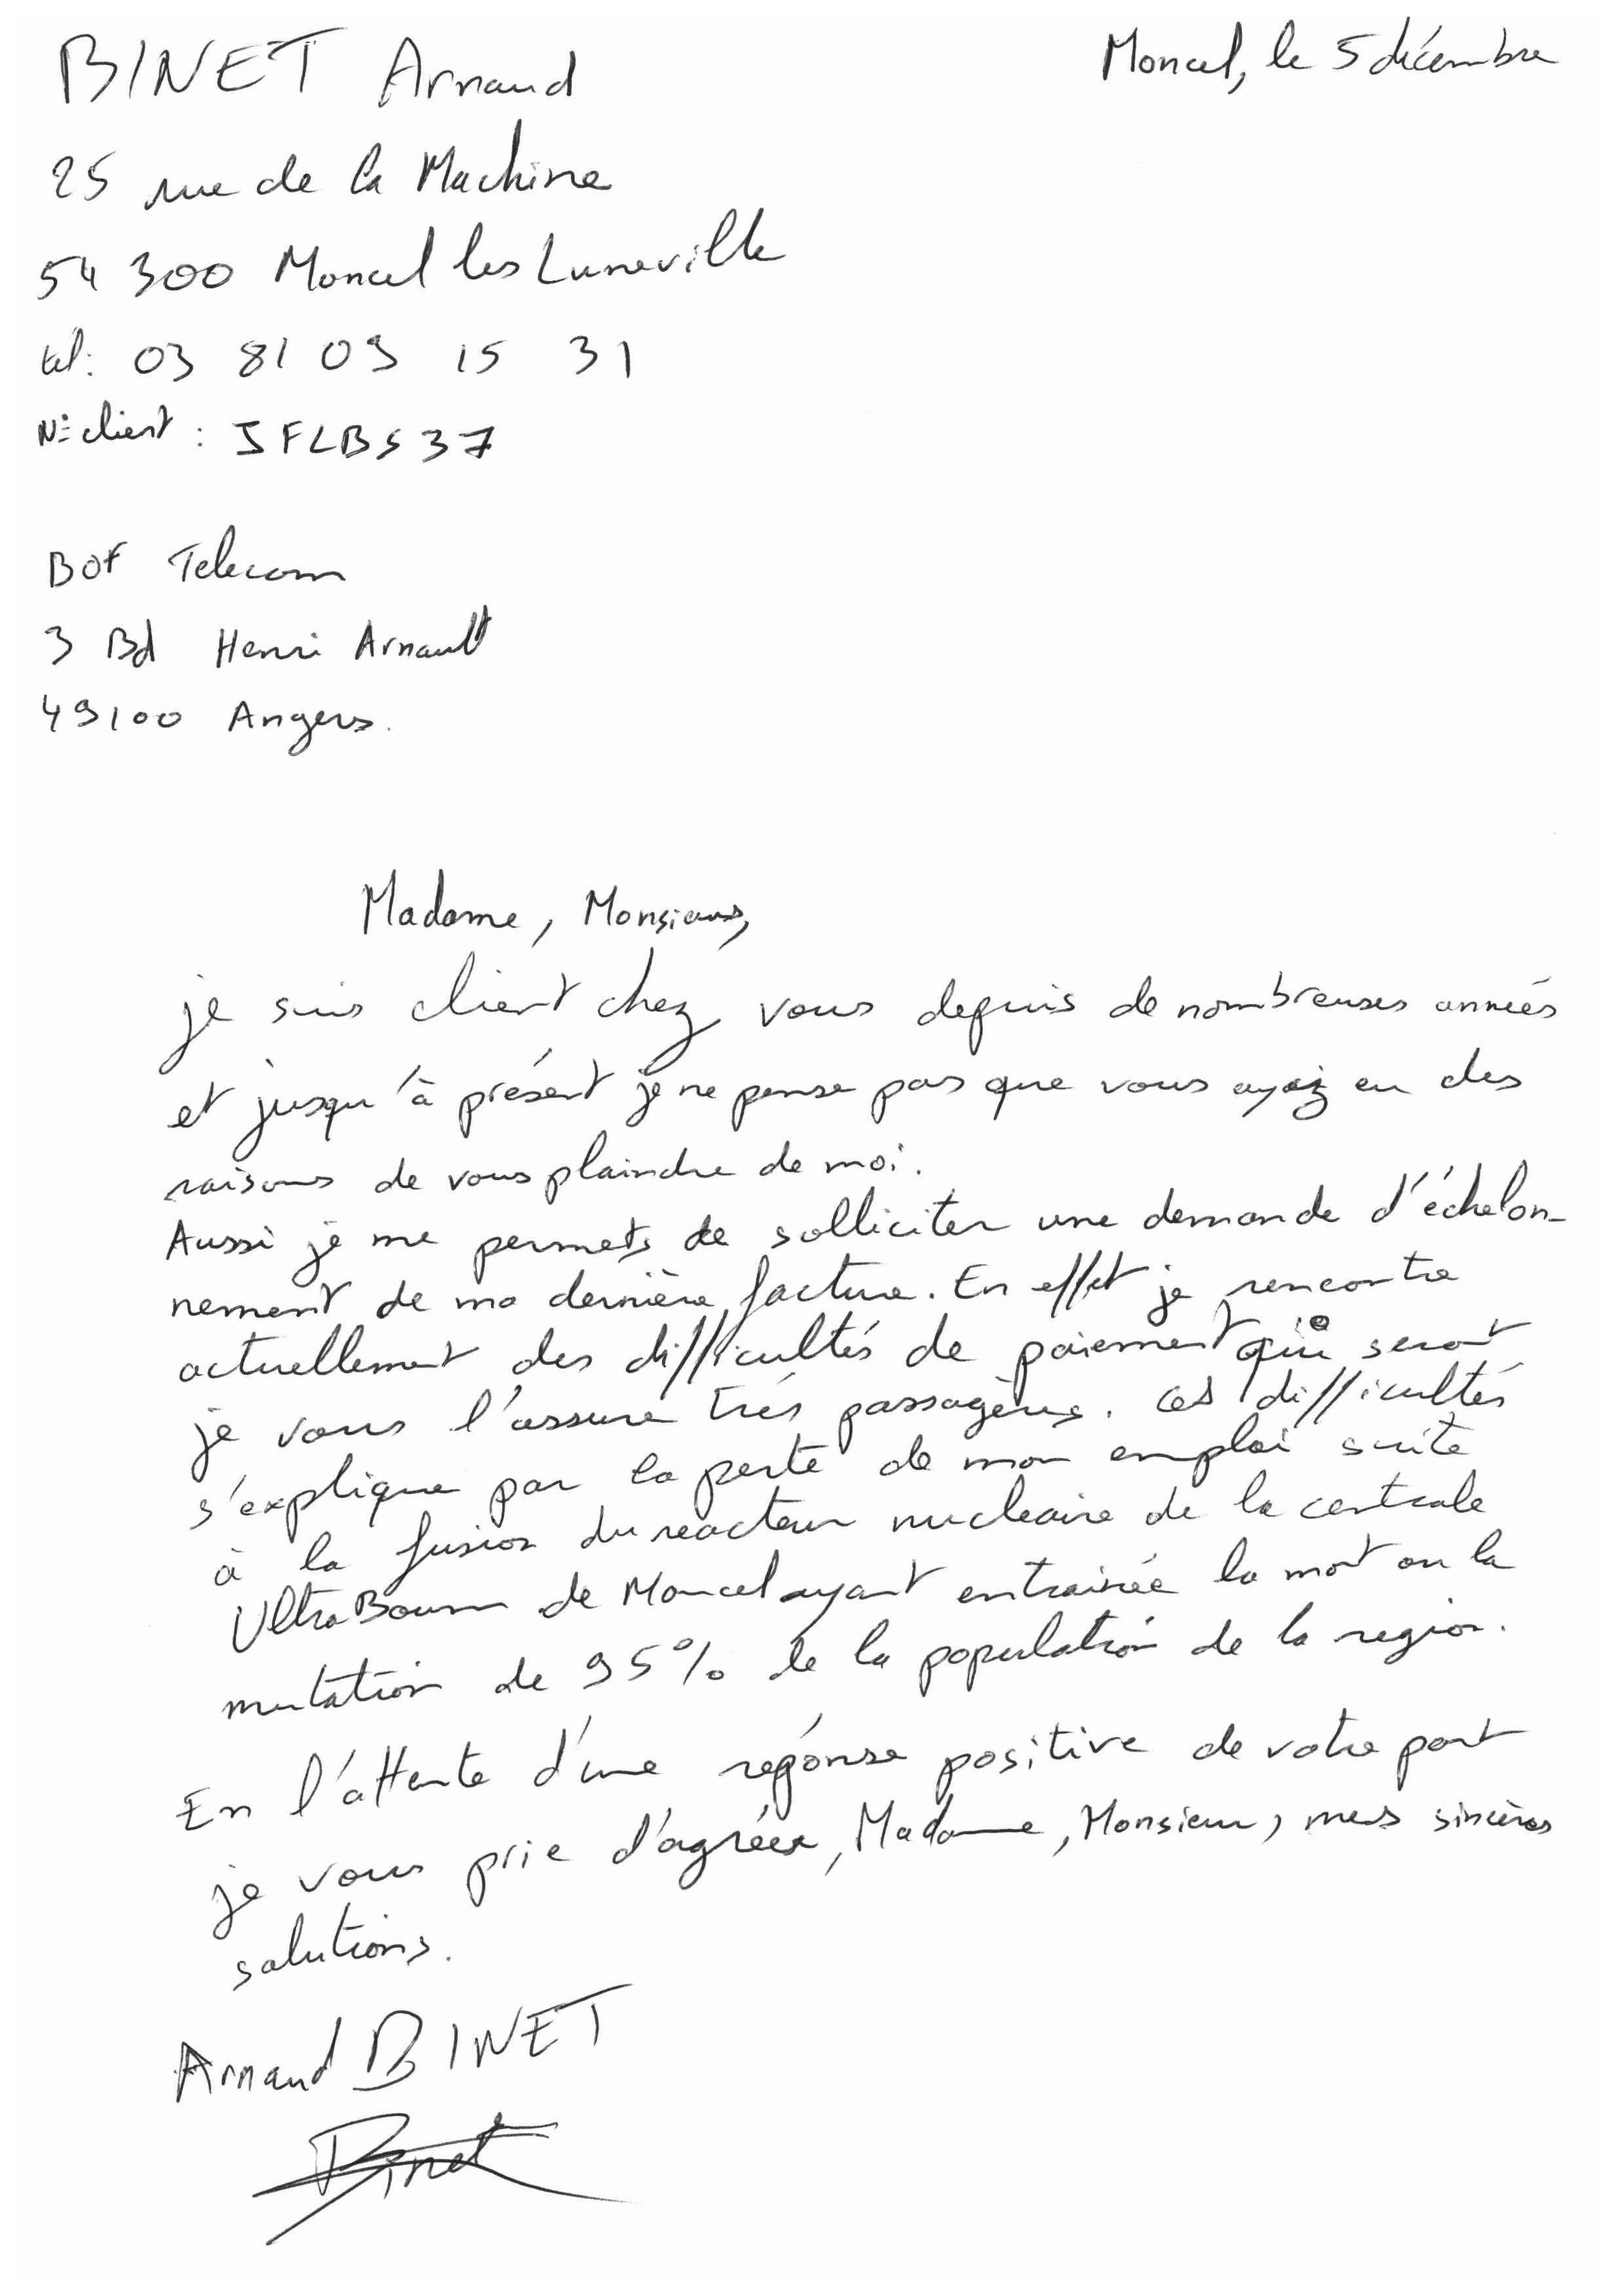 BINET Arnaud
Moncel, le 5 décembre
25 rue de la Machine
54 300 Moncel les Luneville
tel: 03 81 09 15 31
N° client : JFLBS37
BOF Telecom
3 Bd Henri Arnault
49100 Angers.
Madame, Monsieur,
je suis client chez vous depuis de nombreuses années
et jusqu'à présent je ne pense pas que vous ayez eu des
raisons de vous plaindre de moi.
Aussi je me permets de solliciter une demande d'échelon-
nement de ma dernière facture. En effet je rencontre
actuellement des difficultés de paiement qui seront
je vous l'assure très passagères. Ces difficultés
s'explique par la perte de mon emploi suite
à la fusion du reacteur nucleaire de la centrale
UltraBoum de Moncel ayant entrainée la mort ou la
mutation de 95% de la population de la region.
En l'attente d'une réponse positive de votre part
je vous prie d'agréer, Madame, Monsieur, mes sincères
salutions.
Arnaud BINET
Binet